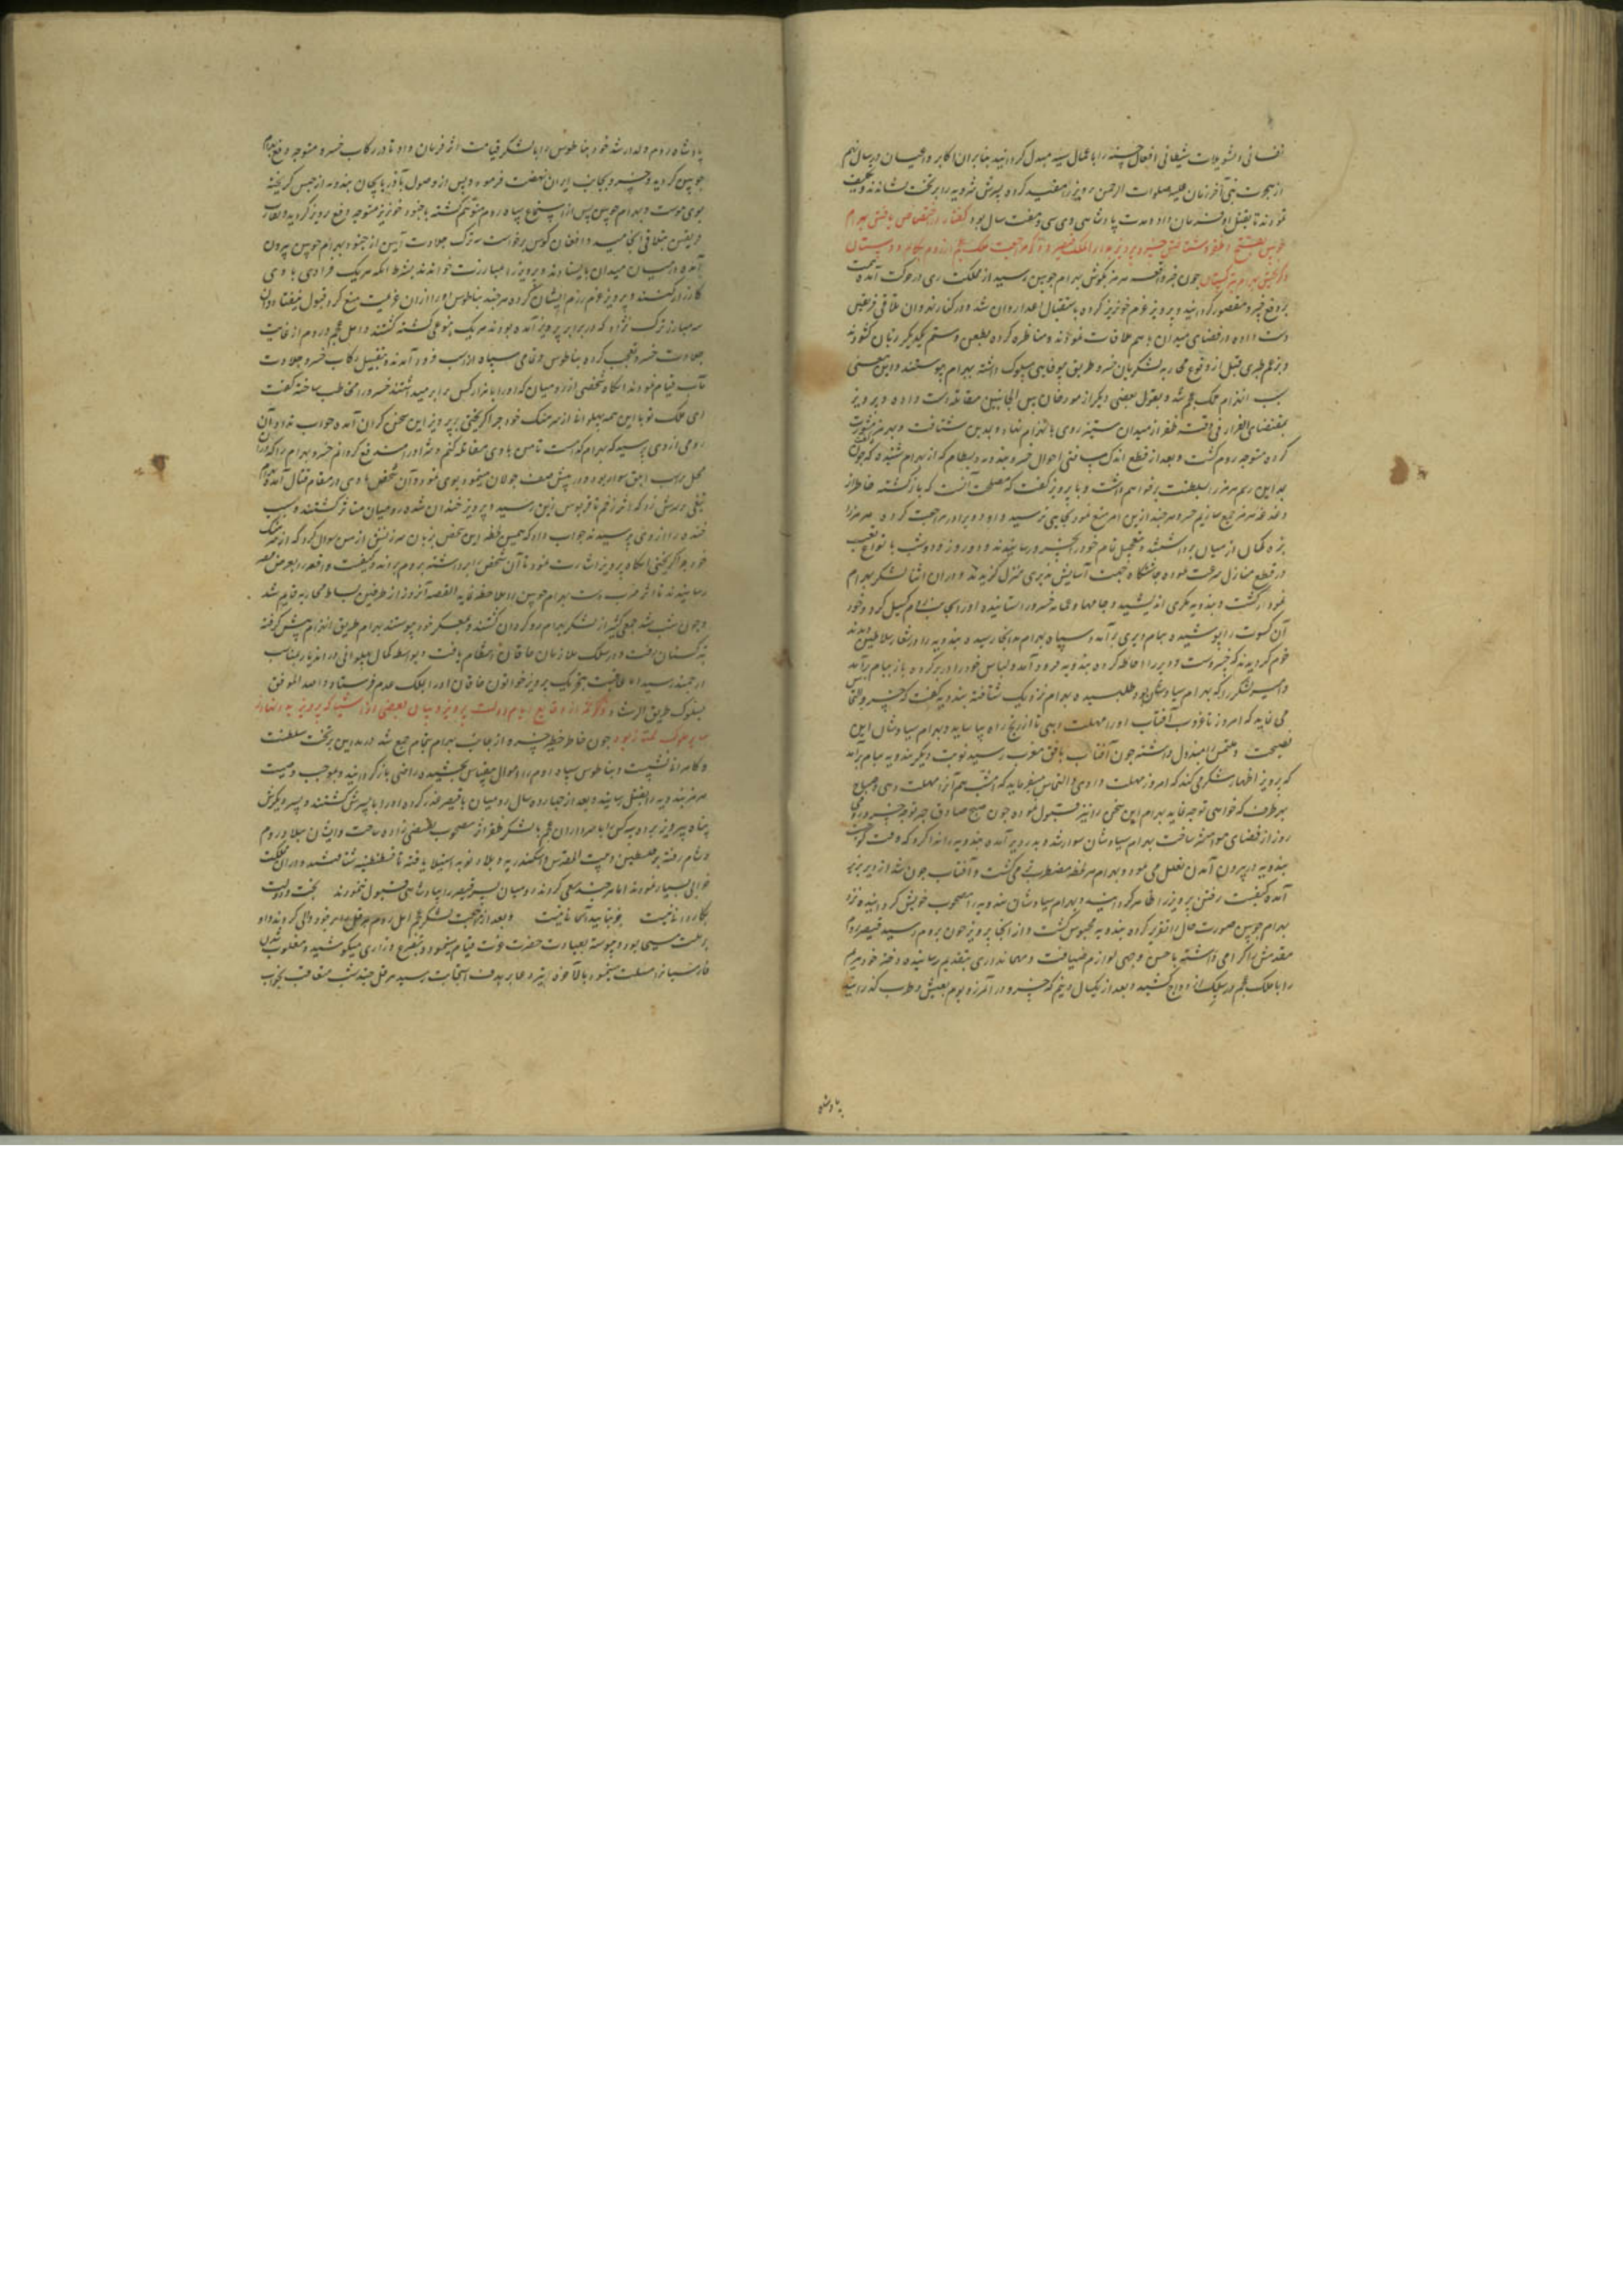 نفسانی و تسویلات شیطانی افعال حسنه را باعمال سیه مبدل کردانید بنابران اکابر و اعیان در سال نهم
از هجرت نبی آخر زمان علیه صلوات الرحمن پرویز را مقید کرده پسرش شرویه را بر تخت نشاندند و
نمودند تا بقتل او فرمان داد و مدت پادشاهی وی سی و هفت سال بود گفتار در اختصاص یافتن بهرام
جون خبر واقعه هرمز بکوش بهرام جوبین رسید از مملکت ری در حرکت آمده
بر دفع خسرو مقصور کردانید و پرویز عزم خونریز کرده باستقبال اعدا روان شد و در کنار نهروان تلاقی فریقین
دست داده در فضای میدان با هم ملاقات نمودند و مناظره کرده بطعن و ستم یکدیگر زبان کشودند
و بزعم طبری قبل از وقوع محاربه لشکریان خسرو طریق بیوفایی مسلوک داشته ببهرام پیوستند و این معنی
سبب انهزام ملک عجم شد و بقول بعضی دیگر از مورخان بین الجانبین مقاتله دست داده و پرویز
بمقتضای الفرار فی وقته ظفر از میدان ستیز روی بانهزام نهاد و بمداین شتافت
کرده متوجه روم کشت و بعد از قطع اندک مسافتی احوال خسرو بندویه و بسطام که از بهرام شنیده
برداشت و با پرویز کفت که مصلحت آنست که بازکشته خاطر از
دغدغه هرمز جمع سازیم خسرو هرچند ازین امر منع نمود بجایی نرسید و او و برادر مراجعت کرده هرمز را
بزه کمان از میان برداشتند و بتعجیل تمام خود را بخسرو رسانیدند و او روز و دو شب با نواع تعب
در قطع منازل سرعت نموده جاشتگاه جهت آسایش بدیری منزل کزیدند و در ان اثنا لشکر بهرام
نمودار کشت و بندویه مکری اندیشید و جامها و عمامه خسرو را ستانیده او را بجانب روم کسیل کرد و خود
آن کسوت را پوشیده ببام دیر برآمد و سپاه بهرام بدانجا رسیده بندویه را در شعار سلاطین دیدند
جزم کردند که خسروست و دیر را احاطه کرده بندویه فرود آمد و لباس خود را در بر کرده باز ببام برآمد
و امیر لشکر را که بهرام سیاوشان بود طلبیده بهرام نزدیک شتافته بندویه کفت که خسرو التماس
می نماید که امروز تا غروب آفتاب او را مهلت دهی تا از رنج راه بیاساید و بهرام سیاوشان این
نصیحت و ملتمس را مبذول داشته جون آفتاب بافق مغرب رسید نوبت دیگر بندویه ببام برآمد
که پرویز اظهار شکر می کند که امروز مهلت دادی و التماس میفرماید که امشب هم آنرا مهلت دهی و صباح
بهر طرف که خواهی توجه نماید بهرام این سخن را نیز قبول نموده جون صبح صادق
روز از فضای هوا منتشر ساخت بهرام سیاوشان سوار شد و بدر دیر آمده بندویه را ندا کرد که وقت
بندویه در بیرون آمدن تعلل می نمود و بهرام هر لحظه مضطرب می کشت و آفتاب جون بلند شد از دیر بزیر
آمده کیفیت رفتن پرویز را ظاهر کردانید و بهرام سیاوشان بندویه را مصحوب خویش کردانیده نزد
بهرام جوبین صورت حال تقریر کرده بندویه محبوس کشت و از آنجا پرویز جون بروم رسید قیصر
مقدمش را کرامی داشته باحسن وجهی لوازم ضیافت و مهمانداری بتقدیم رسانیده دختر خود مریم
را با ملک عجم در سلک ازدواج کشید و بعد از یکسال و نیم که خسرو در آن مرز و بوم بعیش و طرب کذرانید
پادشاه
پادشاه روم ولد ارشد خود بناطوس را با لشکر قیامت اثر فرمان داد تا در رکاب خسرو متوجه دفع بهرام
جوبین کردید و خسرو بجانب ایران نهضت فرموده پس از وصول بآذربایجان بندویه از حبس کریخته
بوی پیوست و بهرام جوبین پس از استماع سپاه روم متوهم کشته با جنود خونریز متوجه دفع پرویز کردید و تقارب
فریقین بتلاقی انجامید و افغان کوس برخواست سه ترک جلادت آیین از جنود بهرام جوبین بیرون
آمده در میان میدان بایستادند و پرویز را بمبارزت خواندند بشرط آنکه هر یک فرادی با وی
کارزار کنند و پرویز عزم رزم ایشان کرده هرچند بناطوس او را از آن عزیمت منع کرد قبول نیفتاد
سه مبارز ترک نژاد که در برابر پرویز آمده بودند هر یک بنوعی کشته کشتند و اهل عجم و روم از غایت
جلادت خسرو تعجب کرده بناطوس و تمامی سپاه از اسب فرود آمدند و بتقبیل رکاب خسرو جلادت
مآب قیام نمودند آنکاه شخصی از رومیان که او را با هزار کس برابر میداشتند خسرو را مخاطب ساخته کفت
ای ملک تو با این همه پهلوانی از سرهنک خود جرا کریختی بر پرویز این سخن کران آمده جواب نداد و آن
رومی از وی پرسید که بهرام کدامست تا من با وی مقاتله کنم و شر او را مندفع کردانم خسرو بهرام را که
بر اسب ابلق سوار بود و در پیش صف جولان مینمود بوی نمود و آن شخص با وی در مقام قتال آمد
تیغی بر سرش زد که اثر زخم تا قربوس زین رسید و پرویز خندان شده رومیان متاثر کشتند و سبب
خنده را از وی پرسیدند جواب داد که همین لحظه این شخص بزبان سرزنش از من سوال کرد که از سرهنک
خود جرا کریختی آنکاه پرویز اشارت نمود تا آن شخص را برداشته بروم بردند و کیفیت واقعه را بعرض قیصر
رسانیدند تا اثر ضرب دست بهرام جوبین را ملاحظه نماید القصه آن روز از طرفین بساط محاربه قایم شد
و جون شب شد جمعی کثیر از لشکر بهرام رو کردان کشتند و بمعسکر خسرو پیوستند بهرام طریق انهزام پیش کرفته
بترکستان رفت و در سلک ملازمان خاقان انتظام یافت و بواسطه کمال پهلوانی در اندیار بمناصب
ارجمند رسید اما عاقبت بتحریک پرویز خواتون خاقان او را بملک عدم فرستاد و اصد الموفق
بسلوک طریق الرشاد ذکر نبذی از وقایع ایام دولت پرویز و بیان بعضی از اشیا که پرویز بدان
بر ملوک ممتاز بود جون خاطر خطیر خسرو از جانب بهرام بتمام جمع شد در مداین بر تخت سلطنت
و کامرانی نشست و بناطوس سپاه روم را اموال بیقیاس بخشیده راضی بازکردانید و بموجب وصیت
هرمز بندویه را بقتل رسانید و بعد از جهارده سال رومیان با قیصر غدر کرده او را با پسرش کشتند و پسر دیگرش
پناه به پرویز برده سه کس از سرداران عجم با لشکر ظفر اثر مصحوب قیصر زاده ساخت و ایشان ببلاد روم
و شام رفته بر فلسطین و بیت المقدس و اسکندریه و بلاد نوبه استیلا یافته تا قسطنطنیه شتافتند و در ان مملکت
خرابی بسیار نمودند اما هرچند سعی کردند رومیان پسر قیصر را بپادشاهی قبول ننمودند بخت و دولت
بکاردانی نیست جز بتایید آسمانی نیست و بعد از مراجعت لشکر عجم اهل روم هرقل را بر خود والی کردند و او
بر ملت مسیحا بود و پیوسته بعبادت حضرت عزت قیام مینمود و بتضرع و زاری میکوشید و مغلوب شدن
فارسیان را مسئلت مینمود بالآخره تیر دعا بر هدف استجابت رسید هرقل جند شب متعاقب بخواب